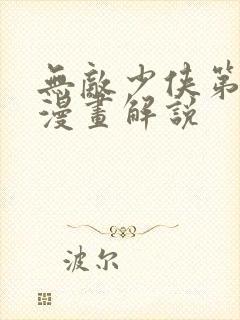 無敵少俠第
漫畫解說
波尔